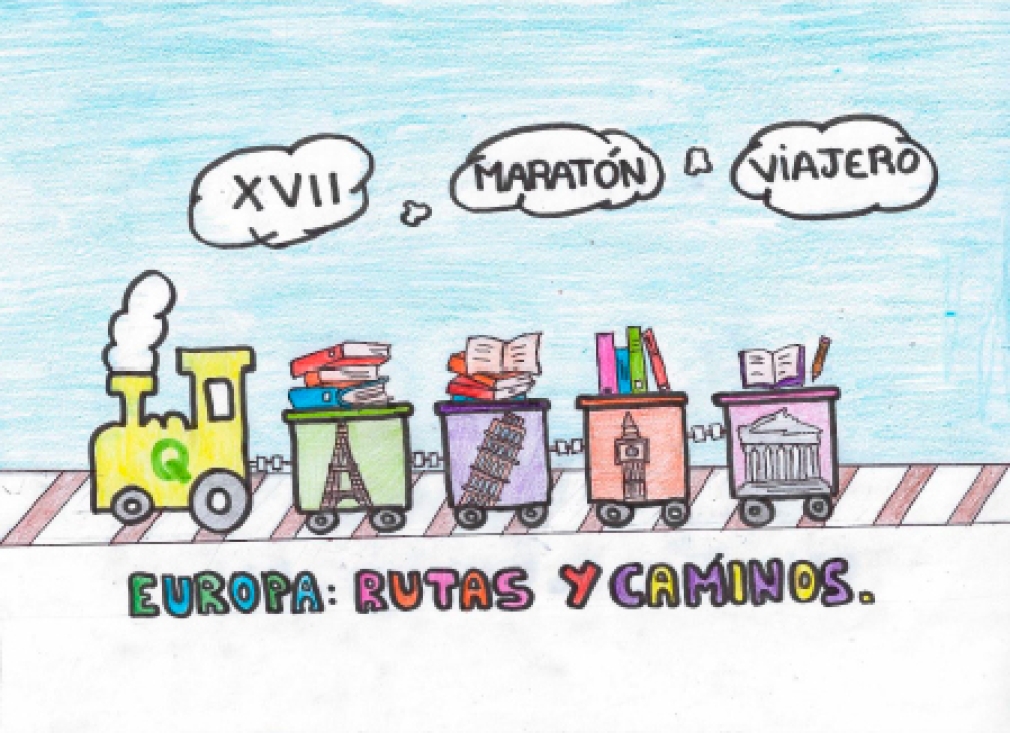 XVII MARATÓN VIAJERO
Q
EUROPA: RUTAS Y CAMINOS.